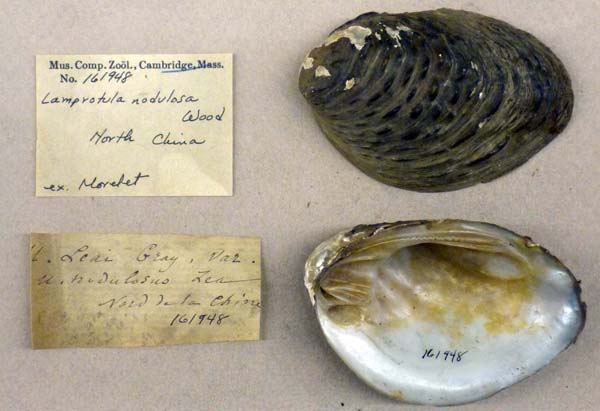 Mus. Comp. Zoöl., Cambridge, Mass.
No. 161948
Lamprotula nodulosa
Wood
North China
ex. Morelet
U. Leai Gray, Var.
U. nodulosus Lea
Nord de la Chine
161948
161948